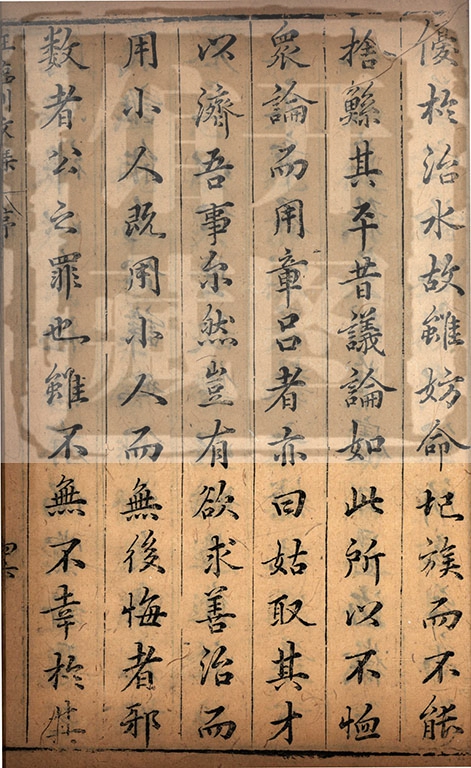 優於治水故雖妨命圮族而不能
捨鯀其平昔議論如此所以不恤
衆論而用章吕者亦曰姑取其才
以濟吾事尔然豈有欲求善治而
用小人既用小人而無後悔者邪
数者公之罪也雖不無不幸於其
王臨川文集 序
四六